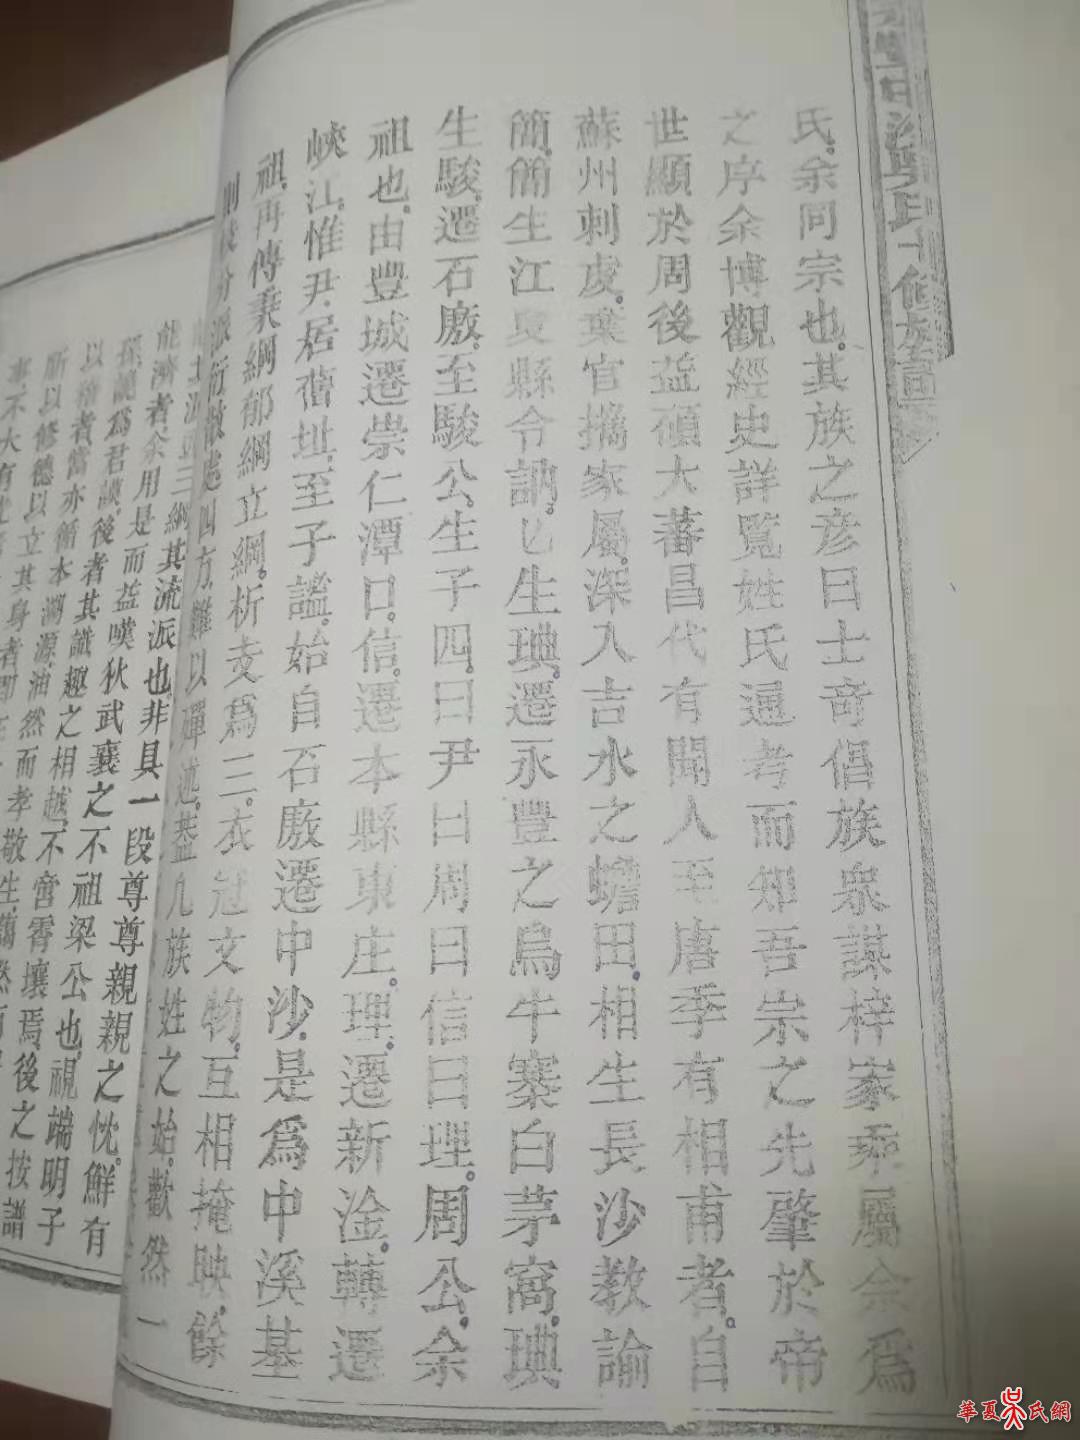 中沙吳氏十修族譜
氏余同宗也其族之彦曰士奇倡族衆謀梓家乘屬余爲
之序余博觀經史詳覧姓氏遍考而知吾宗之先肇於帝
世顯於周後益碩大蕃昌代有聞人至唐季有相甫者自
蘇州刺虔葉官攜家屬深入吉水之蟾田相生長沙教諭
簡簡生江夏縣令訥訥生琠遷永豐之烏牛寨白茅窩琠
生駿遷石廒至駿公生子四曰尹曰周曰信曰理周公余
祖也由豐城遷崇仁潭口信遷本縣東庄理遷新淦轉遷
峽江惟尹居舊址至子謐始自石廒遷中沙是爲中溪基
祖再傳秉綱郁綱立綱析支爲三衣冠文物互相掩映餘
分派衍散處四方難以殫述葢凡族姓之始歡然一
三綱其流派也非具一段尊尊親親之忱鮮有
能濟者余用是而益嘆狄武襄之不祖梁公也視端明子
孫認爲君謨後者其識趣之相越不啻霄壤焉後之按譜
以稽者當亦循本溯源油然而孝敬生藹然
所以修德以立其身者即在
事不大有
華夏吳氏網